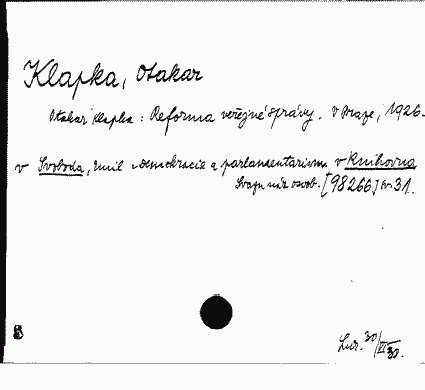 Klapka, Otakar
Otakar Klapka: Reforma veřejné správy. V Praze, 1926.
v Svoboda, Emil: Demokracie a parlamentarism v Knihovna
Svazu nár. osob. [98266] sv. 31.
30/XI 30.